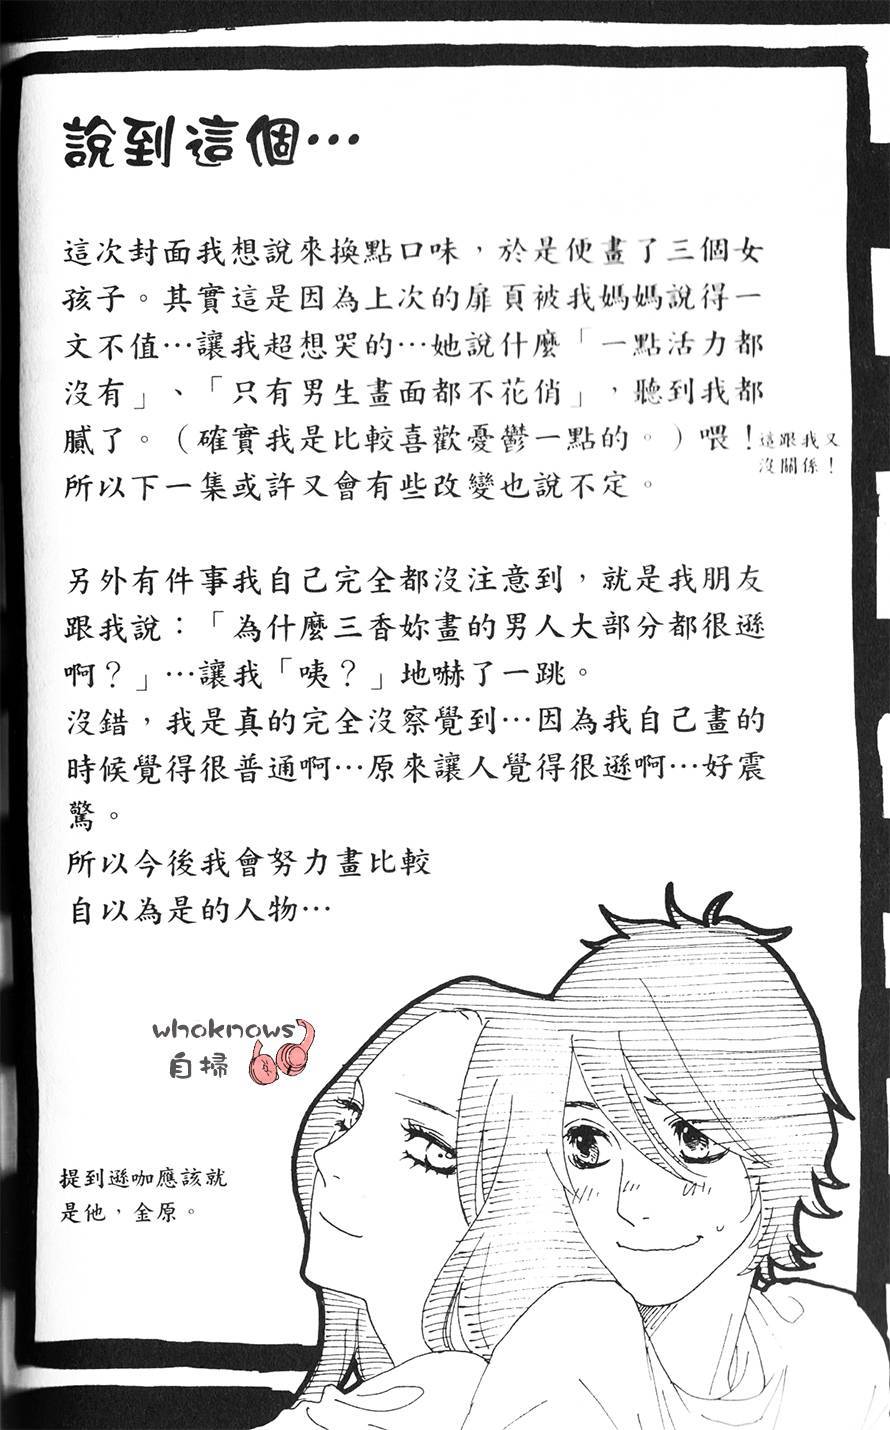 說到這個⋯
這次封面我想說來換點口味，於是便畫了三個女
孩子。其實這是因為上次的扉頁被我媽媽說得一
文不值⋯讓我超想哭的⋯她說什麼「一點活力都
沒有」、「只有男生畫面都不花俏」，聽到我都
膩了。（確實我是比較喜歡憂鬱一點的。）喂！
這跟我又
沒關係！
所以下一集或許又會有些改變也說不定。
另外有件事我自己完全都沒注意到，就是我朋友
跟我說：「為什麼三香妳畫的男人大部分都很遜
啊？」⋯讓我「咦？」地嚇了一跳。
沒錯，我是真的完全沒察覺到⋯因為我自己畫的
時候覺得很普通啊⋯原來讓人覺得很遜啊⋯好震
驚。
所以今後我會努力畫比較
自以為是的人物⋯
whoknows
自掃
提到遜咖應該就
是他，金原。